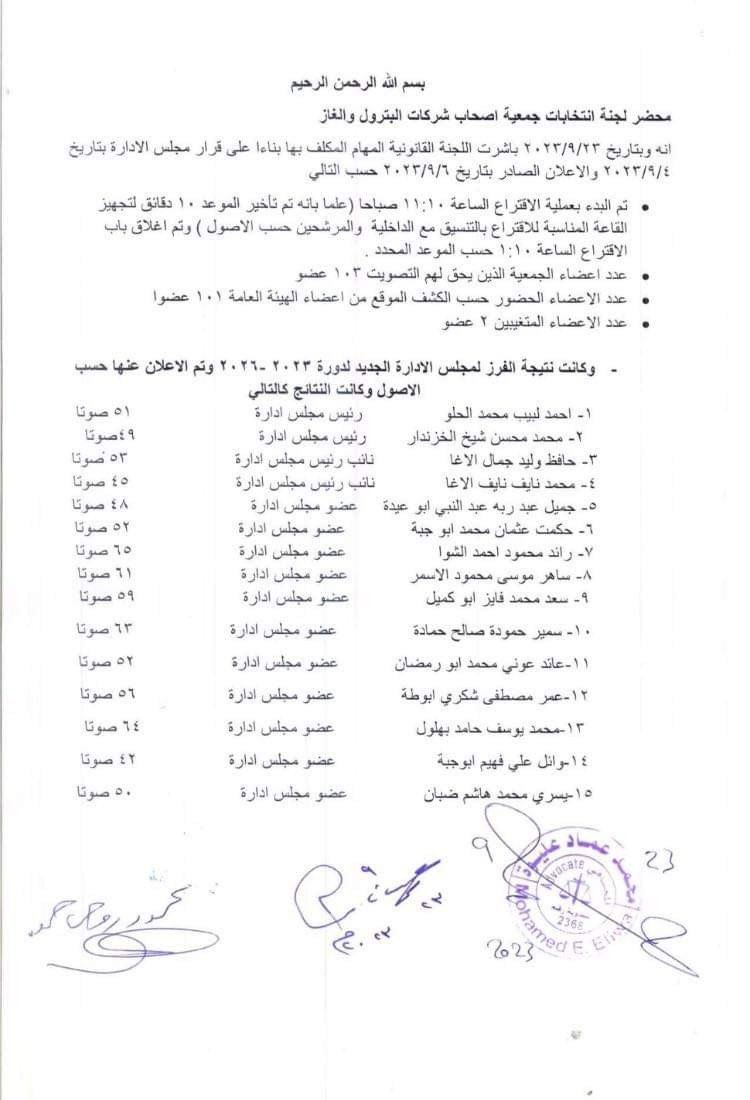 بسم الله الرحمن الرحيم
محضر لجنة انتخابات جمعية اصحاب شركات البترول والغاز
انه وبتاريخ ٢٠٢٣/٩/٢٣ باشرت اللجنة القانونية المهام المكلف بها بناءا على قرار مجلس الادارة بتاريخ
٢٠٢٣/٩/٤ والاعلان الصادر بتاريخ ٢٠٢٣/٩/٦ حسب التالي
• تم البدء بعملية الاقتراع الساعة ١١:١٠ صباحا (علما بانه تم تأخير الموعد ١٠ دقائق لتجهيز
القاعة المناسبة للاقتراع بالتنسيق مع الداخلية والمرشحين حسب الاصول ) وتم اغلاق باب
الاقتراع الساعة ١:١٠ حسب الموعد المحدد .
• عدد اعضاء الجمعية الذين يحق لهم التصويت ١٠٣ عضو
• عدد الاعضاء الحضور حسب الكشف الموقع من اعضاء الهيئة العامة ١٠١ عضوا
• عدد الاعضاء المتغيبين ٢ عضو
- وكانت نتيجة الفرز لمجلس الادارة الجديد لدورة ٢٠٢٣ -٢٠٢٦ وتم الاعلان عنها حسب
الاصول وكانت النتائج كالتالي
١- احمد لبيب محمد الحلو رئيس مجلس ادارة ٥١ صوتا
٢- محمد محسن شيخ الخزندار رئيس مجلس ادارة ٤٩صوتا
٣- حافظ وليد جمال الاغا نائب رئيس مجلس ادارة ٥٣ صوتا
٤- محمد نايف نايف الاغا نائب رئيس مجلس ادارة ٤٥ صوتا
٥- جميل عبد ربه عبد النبي ابو عيدة عضو مجلس ادارة ٤٨ صوتا
٦- حكمت عثمان محمد ابو جبة عضو مجلس ادارة ٥٢ صوتا
٧- رائد محمود احمد الشوا عضو مجلس ادارة ٦٥ صوتا
٨- ساهر موسى محمود الاسمر عضو مجلس ادارة ٦١ صوتا
٩- سعد محمد فايز ابو كميل عضو مجلس ادارة ٥٩ صوتا
١٠- سمير حمودة صالح حمادة عضو مجلس ادارة ٦٣ صوتا
١١-عائد عوني محمد ابو رمضان عضو مجلس ادارة ٥٢ صوتا
١٢-عمر مصطفى شكري ابوطة عضو مجلس ادارة ٥٦ صوتا
١٣-محمد يوسف حامد بهلول عضو مجلس ادارة ٦٤ صوتا
١٤-وائل علي فهيم ابوجبة عضو مجلس ادارة ٤٢ صوتا
١٥-يسري محمد هاشم ضبان عضو مجلس ادارة ٥٠ صوتا
محمد عماد عليوة
المحامي Advocate
2368
Mohamed E. Eliwa
23
9
2023